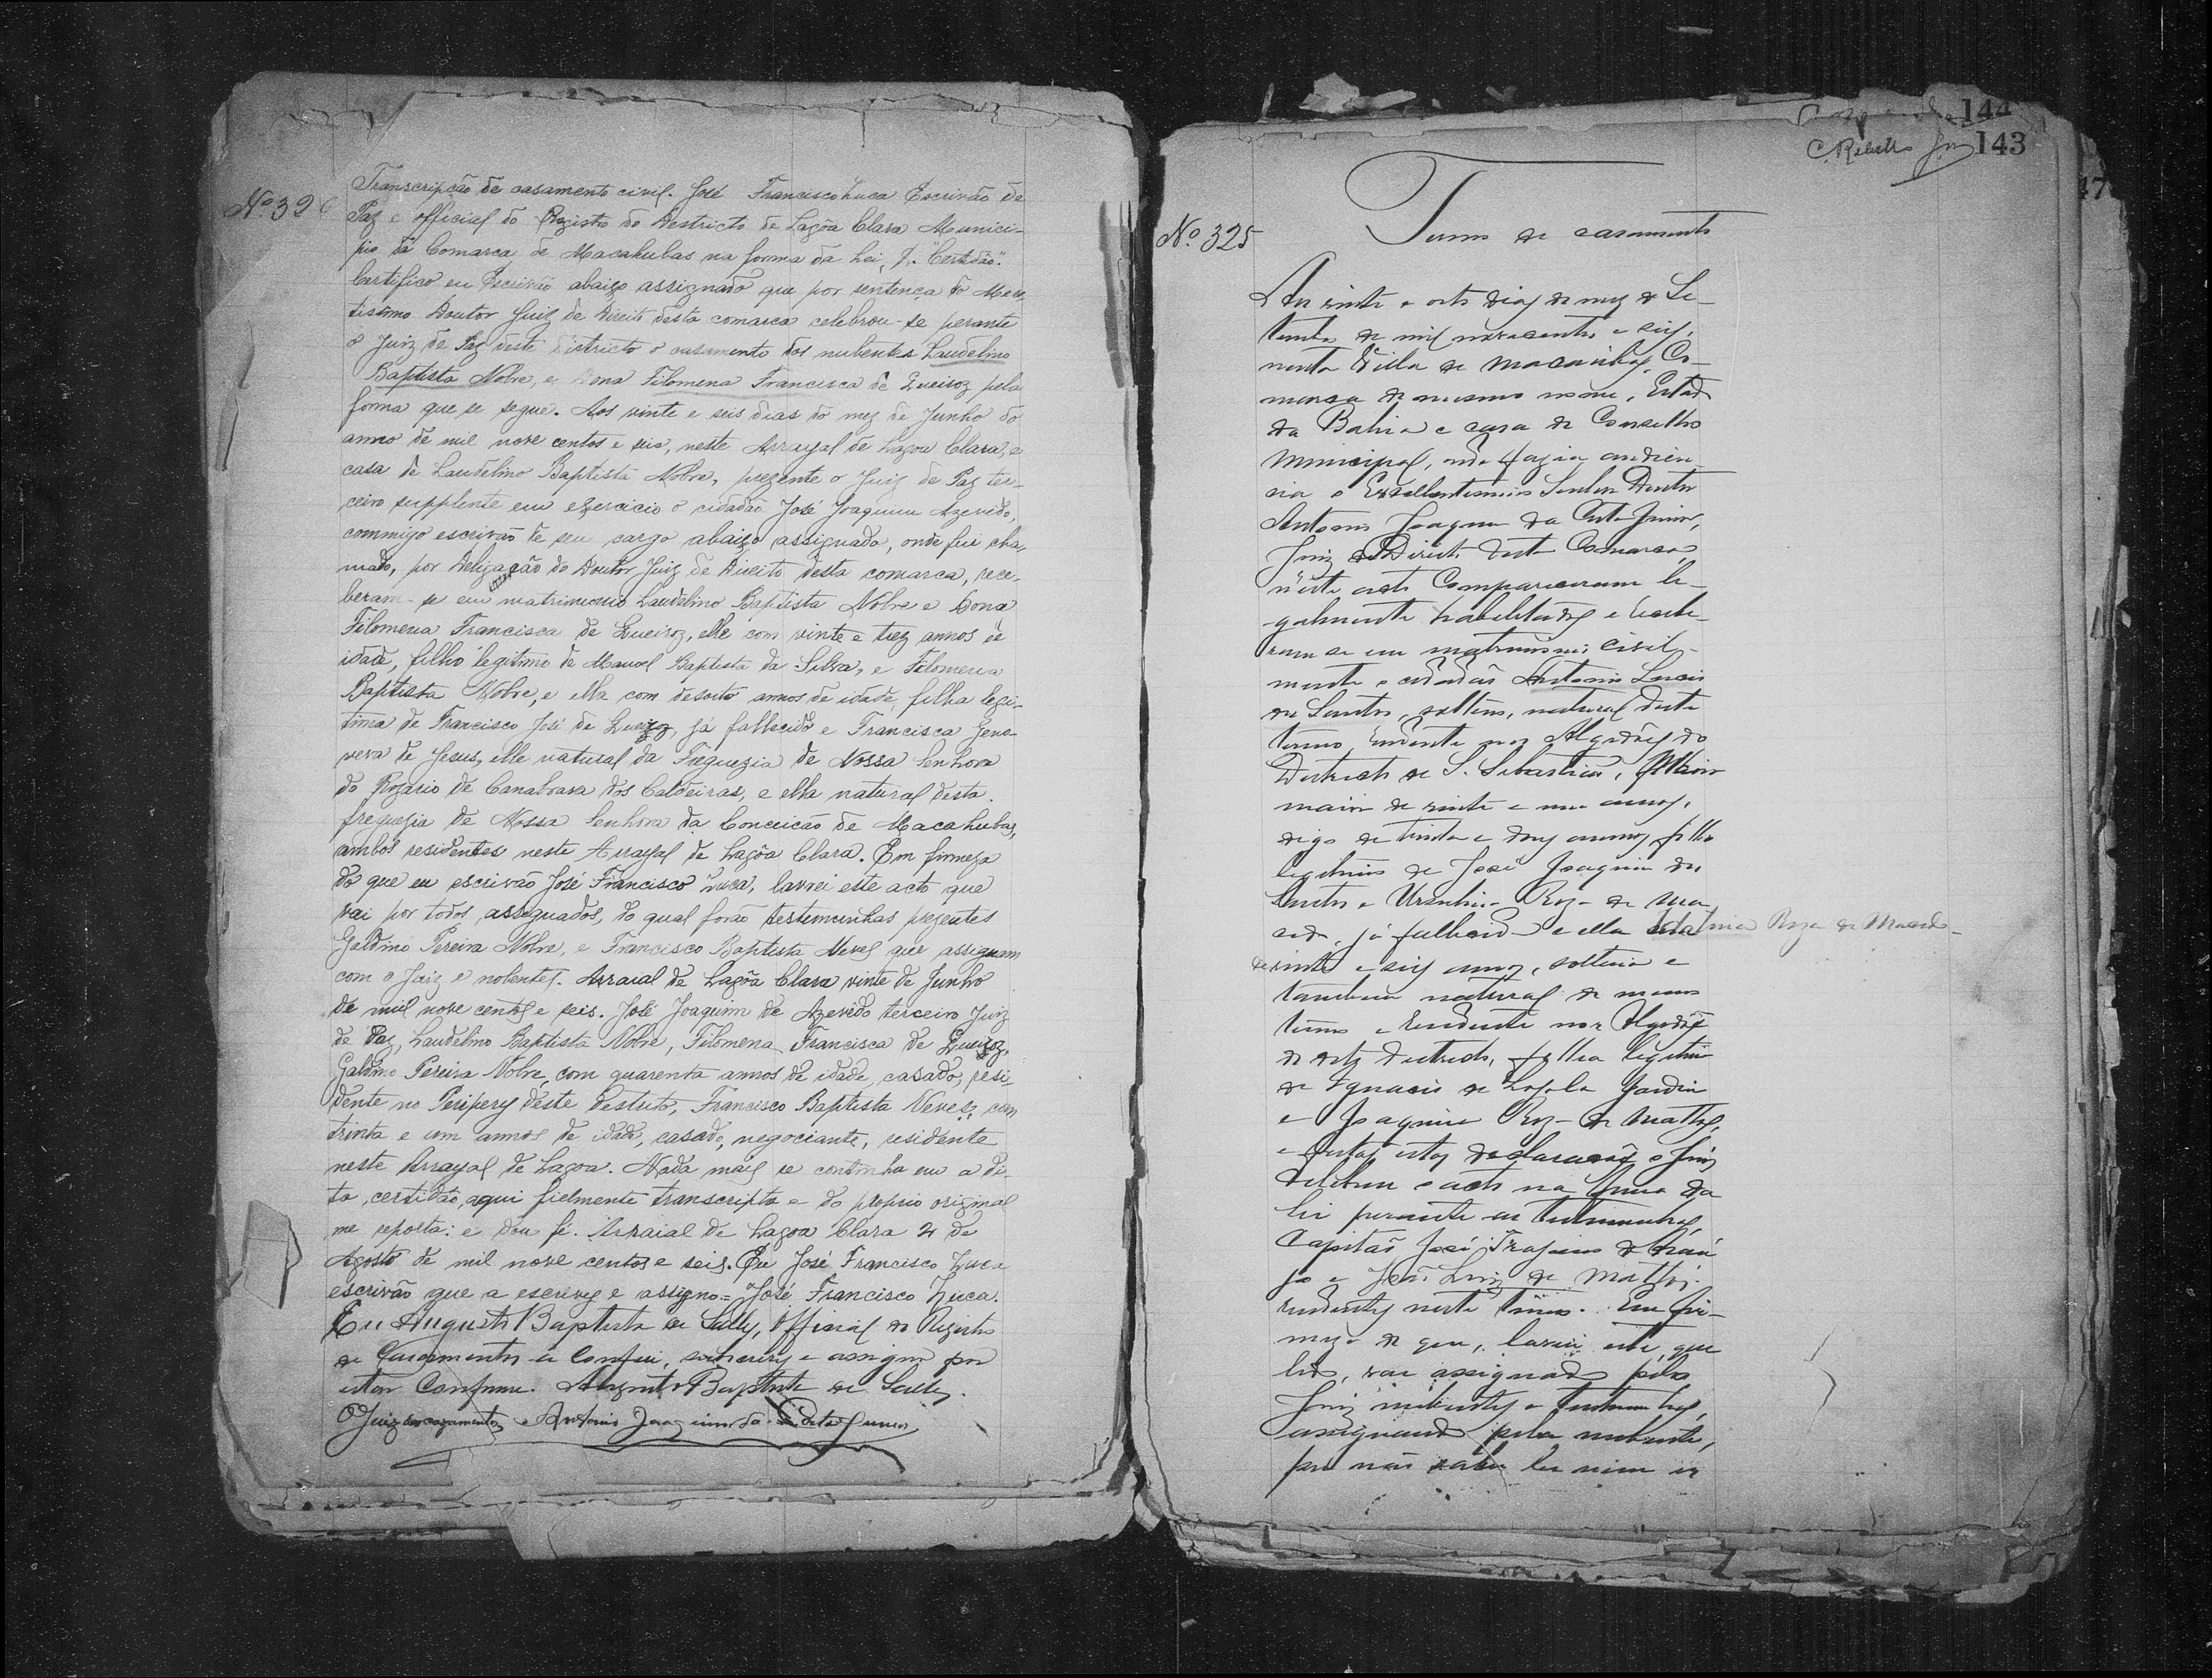 Nº 326
Transcripção de casamento civil. José Francisco Zuca Escrivão de
Paz e official do Registro do Destricto de Lagôa Clara Munici-
pio da Comarca de Macahubas na forma da Lei, &. "Certidão".
Certifico eu Escrivão abaixo assignado que por sentença do Mere-
tissimo Doutor Juiz de Direito desta comarca celebrou-se perante
o Juiz de Paz deste districto o casamento dos nubentes Laudelino
Baptista Nobre, e Dona Filomena Francisca de Queiroz pela
forma que se segue. Aos vinte e seis dias do mez de Junho do
anno de mil nove centos e seis, neste Arrayal de Lagoa Clara, e
casa de Laudelino Baptista Nobre, prezente o Juiz de Paz ter-
ceiro supplente em exercicio o cidadão José Joaquim Azevedo,
commigo escrivão de seu cargo abaixo assignado, onde fui cha-
mado, por Deligação do Doutor Juiz de Direito desta comarca, rece-
beram-se em matrimonio Laudelino Baptista Nobre e Dona
Filomena Francisca de Queiroz, elle com vinte e trez annos de
idade, filho legitimo de Manoel Baptista da Silva, e Filomena
Baptista Nobre, e ella com desoito annos de idade, filha legi-
tima de Francisco José de Queiroz, já fallecido e Francisca Geno-
veva de Jesus, elle natural da Freguezia de Nossa Senhora
do Rozario de Canabrava dos Caldeiras, e ella natural desta
freguezia de Nossa Senhora da Conceicão de Macahubas,
ambos residentes neste Arrayal de Lagôa Clara. Em firmeza
do que eu escrivão José Francisco Zuca, lavrei este acto que
vai por todos assignados, do qual forão testemunhas prezentes
Galdino Pereira Nobre, e Francisco Baptista Neves que assignam
com o Juiz e nobentes. Arraial de Lagôa Clara vinte de Junho
de mil nove centos e seis. José Joaquim de Azevêdo terceiro Juiz
de Paz, Laudelino Baptista Nobre, Filomena Francisca de Queiroz,
Galdino Pereira Nobre, com quarenta annos de idade, casado, resi-
dente no Peripery deste destrito, Francisco Baptista Neves, com
trinta e um annos de idade, casado, negociante, residente
neste Arrayal de Lagoa. Nada mais se continha em a di-
ta certidão, aqui fielmente transcripta e do proprio original
me reporta: e dou fé. Arraial de Lagoa Clara 2 de
Agosto de mil nove centos e seis. Eu José Francisco Zuca
escrivão que a escrevy e assigno = José Francisco Zuca.
Eu Augusto Baptista de Salles, Official do Registro
de Casamentos a conferi, subscrevy e assigno por
estar conforme. Augusto Baptista de Salles.
O Juiz dos casamentos Antonio Joaquim da Costa Junior
144
C. Ribeiro Jor 143
47
Nº 325
Termo de casamento
Aos vinte e oito dias do mez de Se-
tembro de mil novecentos e seis,
nesta Villa de Macaúbas, Co-
marca do mesmo nome, Estado
da Bahia e casa do Conselho
Municipal, onde fazia audien-
cia o Excellentissimo Senhor Doutor
Antonio Joaquim da Costa Junior,
Juiz de Direito desta Comarca,
n'este acto compareceram le-
galmente habilitados e recebe-
ram-se em matrimonio civil-
mente o cidadão Antonio
dos Santos, solteiro, natural deste
termo, residente nos Algodões do
Districto de S. Sebastião,
maior de vinte e um annos,
digo de trinta e dous annos, filho
legitimo de José Joaquim dos
Santos e Roza de Ma-
cedo, já fallecida e ella Roza de Macedo
de vinte e seis annos, solteira e
tambem natural do mesmo
termo e residente nos Algodões
do dito districto, filha legitima
de Ignacio de Loyola
e Joaquina Roza de Mattos,
e feitas estas declarações o Juiz
celebrou o acto na forma da
lei perante as testemunhas
Capitão José Trajano de Araú-
jo e José Luiz de Mattos
residentes neste termo. Em fir-
meza do que, lavrei este, que
lido, vai assignado pelo
Juiz nubentes e testemunhas,
assignando pela nubente,
por não saber ler nem es